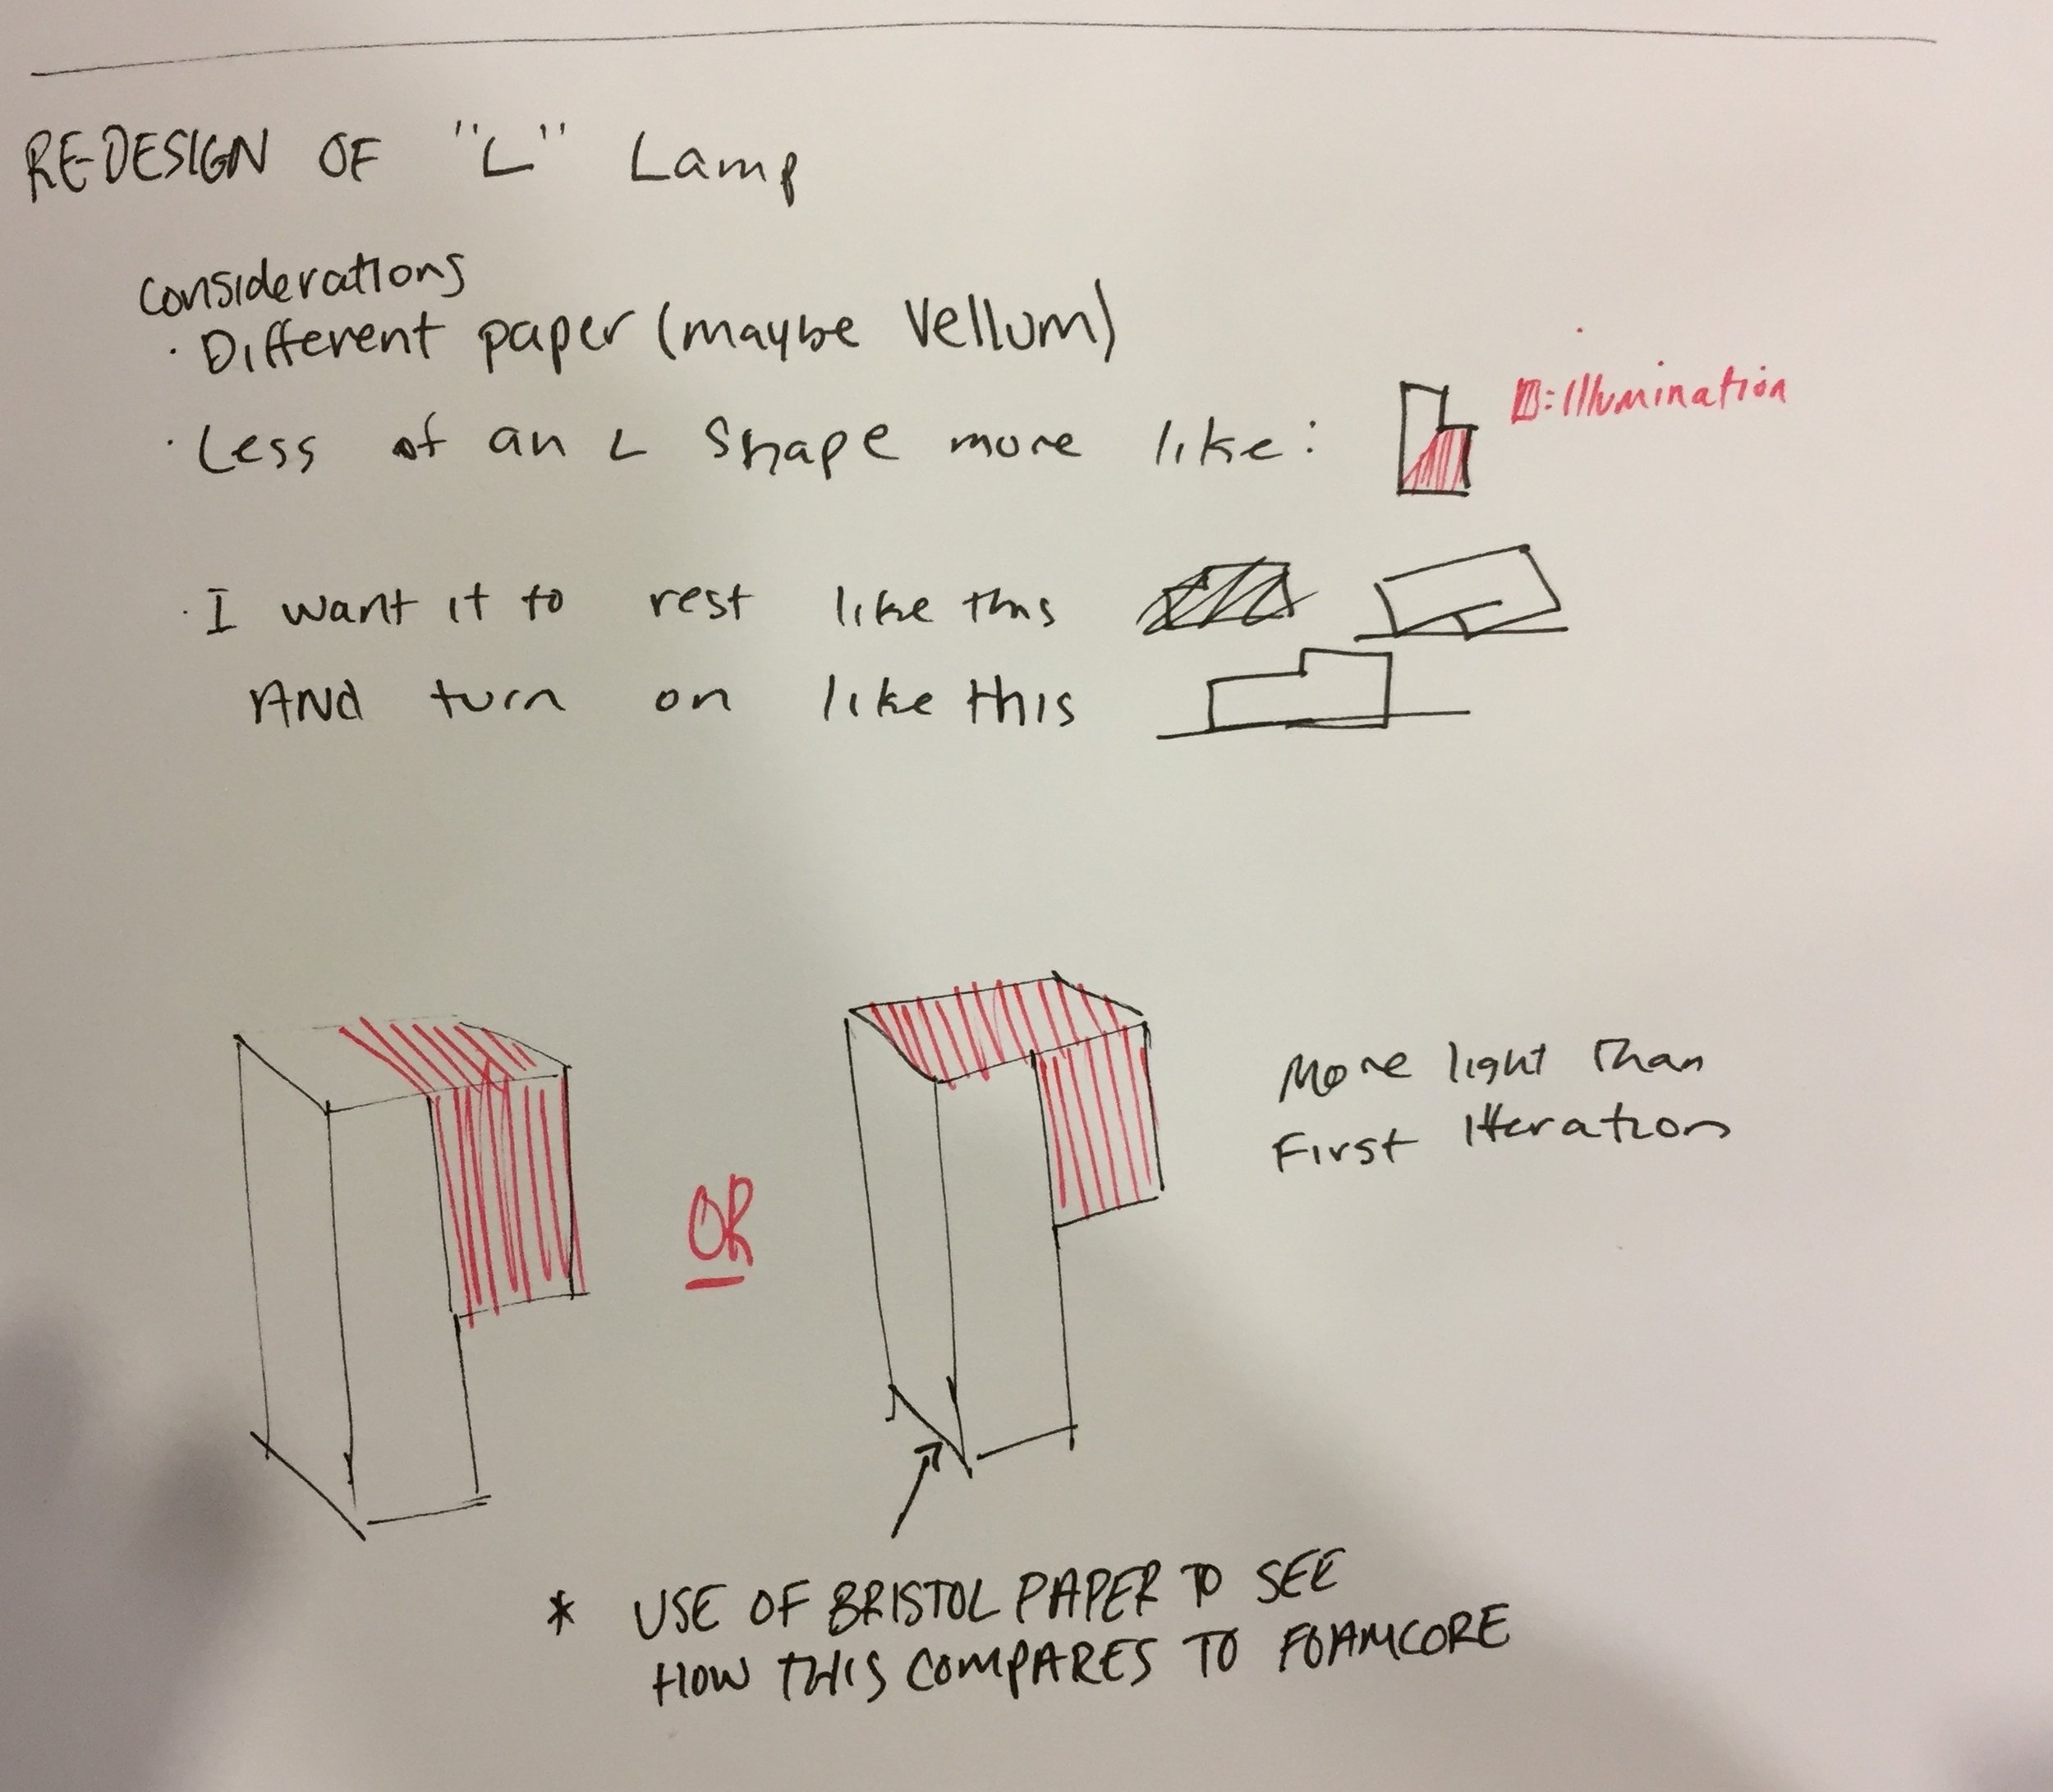 RE-DESIGN OF "L" Lamp
considerations
· Different paper (maybe Vellum)
· Less of an L Shape more like:
= Illumination
· I want it to rest like this
AND turn on like this
OR
More light Than
First Iteration
* USE OF BRISTOL PAPER TO SEE
HOW THIS COMPARES TO FOAMCORE